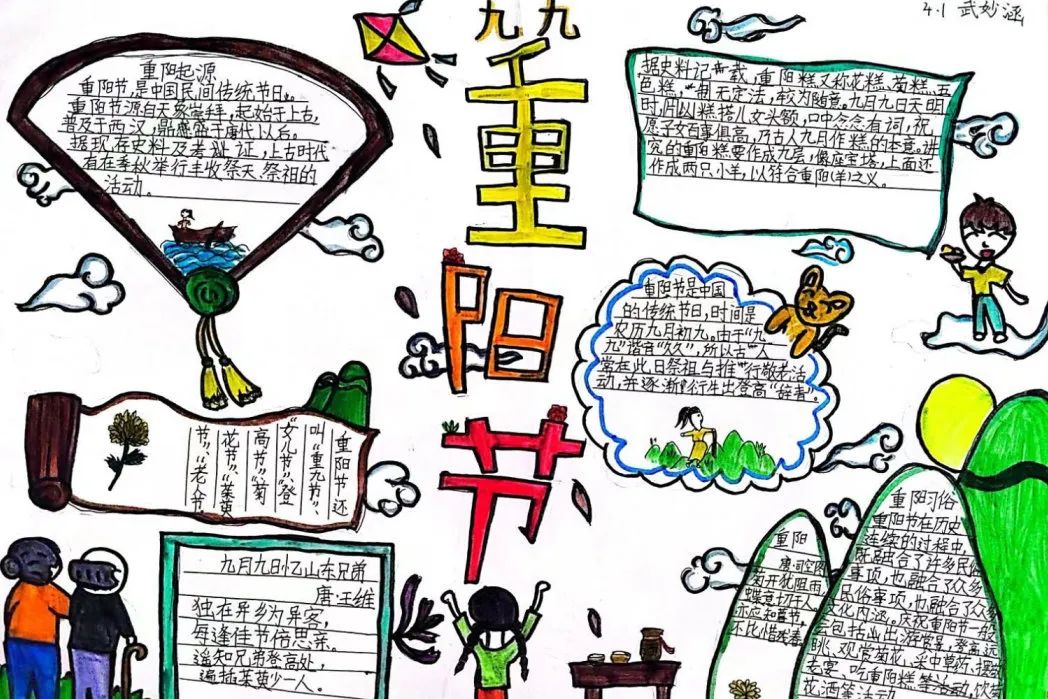 4.1 武妙涵
九九
重阳节
重阳起源
重阳节,是中国民间传统节日。
重阳节源自天象崇拜,起始于上古,
普及于西汉,鼎盛于唐代以后。
据现存史料及考证,上古时代
有在季秋举行丰收祭天、祭祖的
活动。
据史料记载,重阳糕又称花糕、菊糕、五
色糕,制无定法,较为随意。九月九日天明
时,用以糕搭儿女头额,口中念念有词,祝
愿子女百事俱高,乃古人九月作糕的本意。讲
究的重阳糕要作成九层,像座宝塔,上面还
作成两只小羊,以符合重阳(羊)之义。
重阳节是中国
的传统节日,时间是
农历九月初九。由于“九
九”谐音“久久”,所以古人
常在此日祭祖与推行敬老活
动,并逐渐衍生出登高“辞青”。
重阳节还
叫“重九节”、
“女儿节”“登
高节”“菊
花节”、“茱萸
节”、“老人节
九月九日忆山东兄弟
唐:王维
独在异乡为异客,
每逢佳节倍思亲。
遥知兄弟登高处,
遍插茱萸少一人。
重阳
唐:司空图
菊开犹阻雨,
蝶意切于人。
亦应知暮节,
不比惜残春
重阳习俗
重阳节在历史
连续的过程中,
既融合了许多民俗
事项,也融合了众多
民俗事项,也融合了众多
文化内涵。庆祝重阳节一般
会包括出游赏景、登高远
眺、观赏菊花、采中草药、摆敬
去宴、吃重阳糕
花酒等活